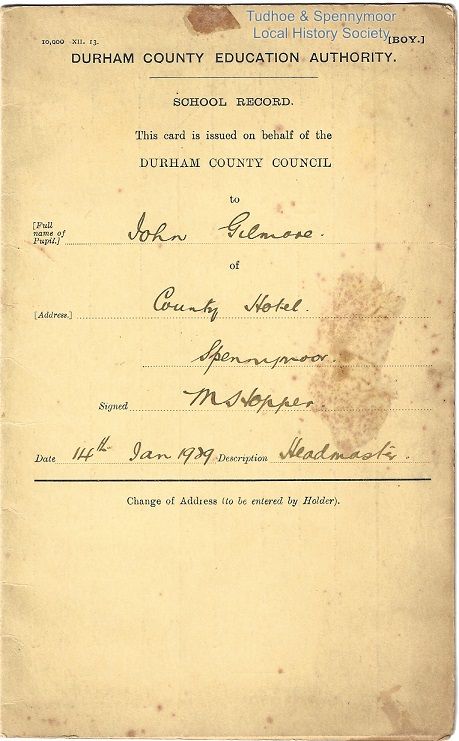 Tudhoe & Spennymoor
Local History Society
10,000 XII. 13.
[BOY.]
DURHAM COUNTY EDUCATION AUTHORITY.
SCHOOL RECORD.
This card is issued on behalf of the
DURHAM COUNTY COUNCIL
to
[Full name of Pupil.] John Gilmore.
of
[Address.] County Hotel.
Spennymoor.
Signed M S Hopper.
Date 14th Jan Description Headmaster.
Change of Address (to be entered by Holder).